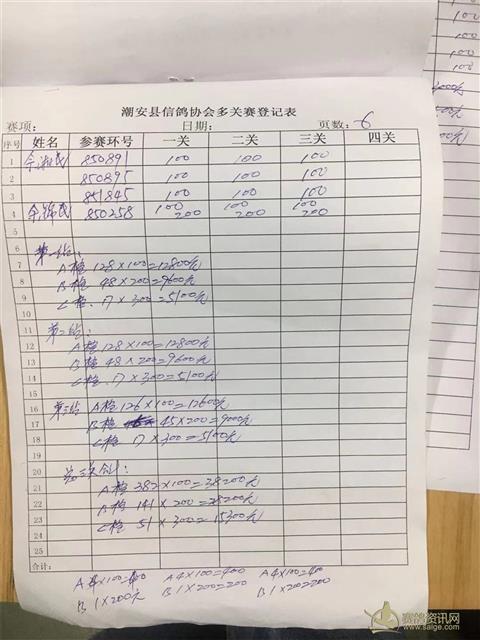 潮安县信鸽协会多关赛登记表
赛项: 日期: 页数: 6
序号 姓名 参赛环号 一关 二关 三关 四关
1 余湘民 850891 100 100 100
2 850895 100 100 100
3 851845 100 100 100
4 余锦民 850258 100 200 100 200 100 200
5
6 第一站:
7 A档 128×100=12800元
8 B档 48×200=9600元
9 C档 17×300=5100元
10
11 第二站:
12 A档 128×100=12800
13 B档 48×200=9600元
14 C档 17×300=5100元
15
16 第三站 A档 126×100=12600元
17 B档 45×200=9000元
18 C档 17×300=5100元
19
20
21 A档 382×100=38200元
22 A档 141×200=28200元
23 C档 51×300=15300元
24
25
合计:
A 4×100=400 A4×100=400 A4×100=400
B 1×200元 B 1×200=200 B1×200=200
赛鸽资讯网
www.saige.com